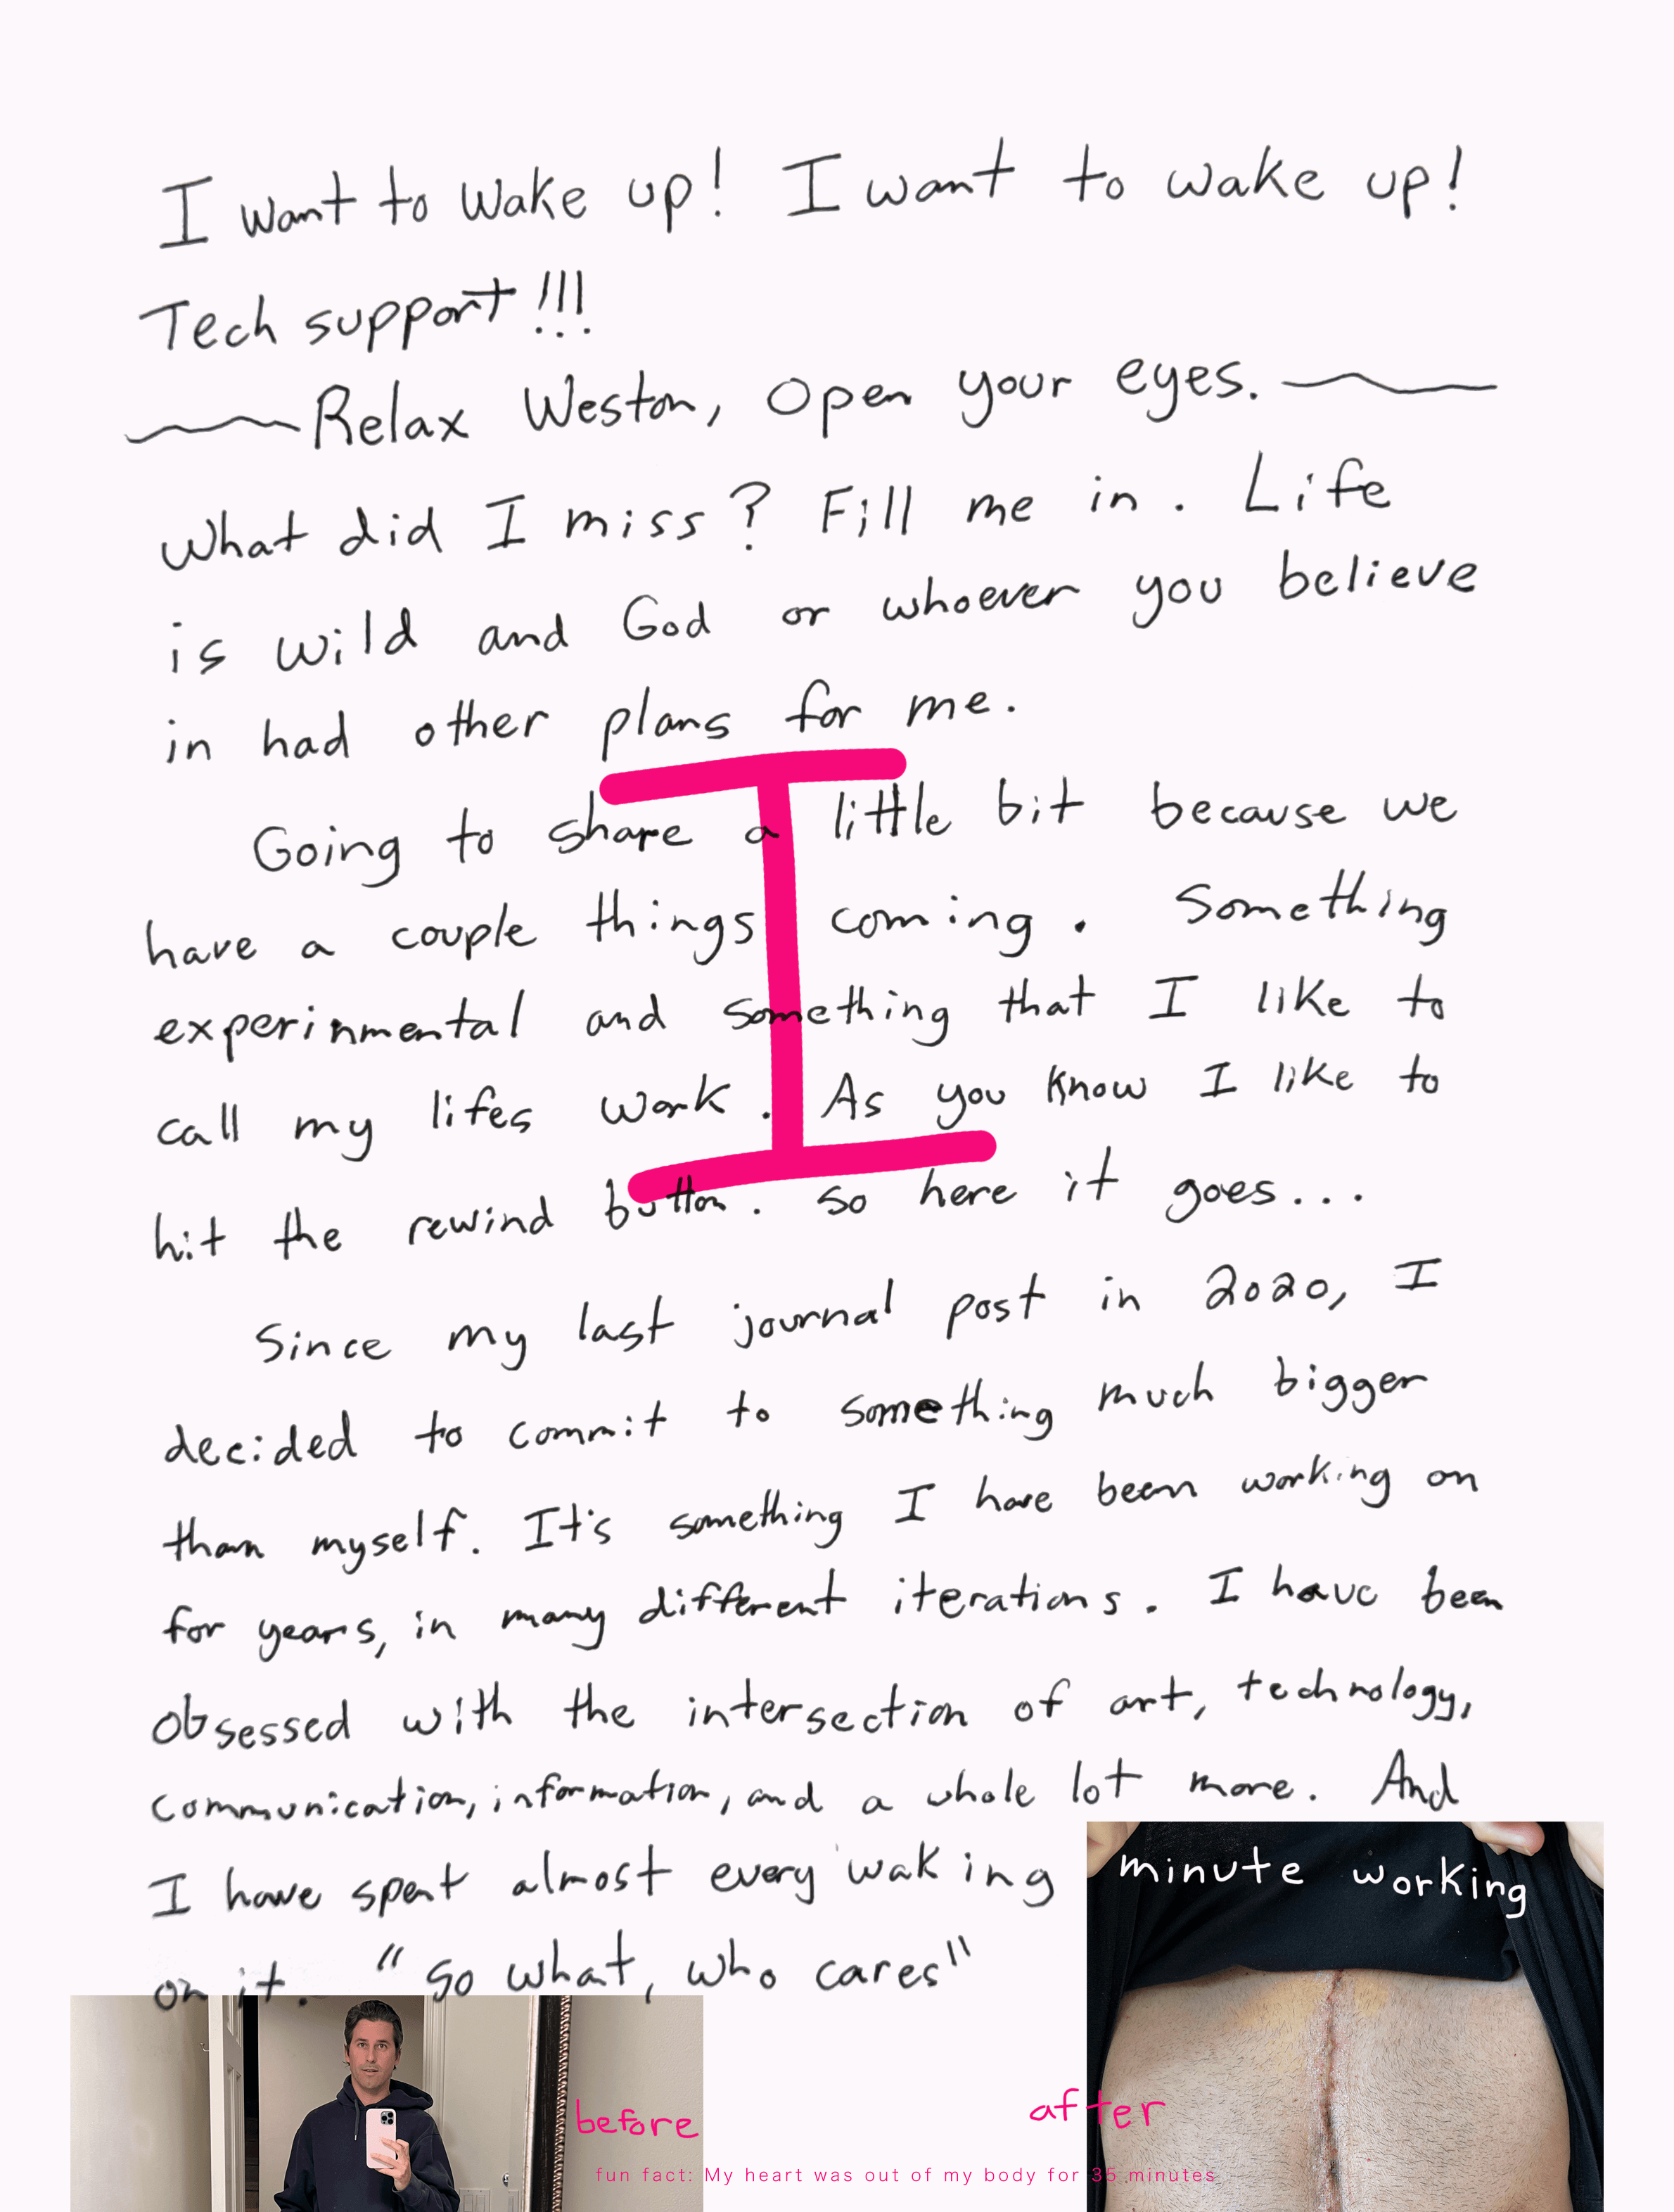 I want to wake up! I want to wake up!
Tech support!!!
Relax Weston, Open your eyes.
What did I miss? Fill me in. Life
is wild and God or whoever you believe
in had other plans for me.
I
Going to share a little bit because we
have a couple things coming. Something
experinmental and something that I like to
call my lifes work. As you know I like to
hit the rewind button. So here it goes...
Since my last journal post in 2020, I
decided to commit to something much bigger
than myself. It's something I have been working on
for years, in many different iterations. I have been
obsessed with the intersection of art, technology,
communication, information, and a whole lot more. And
I have spent almost every waking minute working
on it. "So what, who cares"
before
after
fun fact: My heart was out of my body for 35 minutes